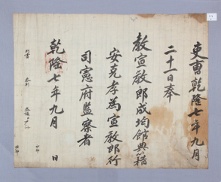 吏曹乾隆七年九月
二十一日奉
教宣教郎成均館典籍
安克孝爲宣教郎行
司憲府監察者
乾隆七年九月 日